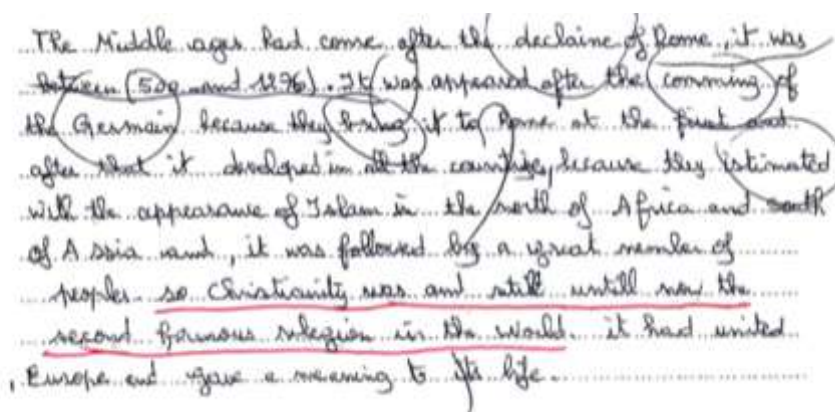 The Middle ages had come after the declaine of Rome, it was
between (500 and 1296). It was appeared after the comming of
the Germain because they bring it to Rome at the first and
after that it developed in all the countrie, because they istimated
with the appearance of Islam in the north of Africa and south
of Assia and, it was followed by a great member of
peoples. so Christianity was and still untill now the
second famous relegion in the world. it had united
Europe and gave a meaning to its life.